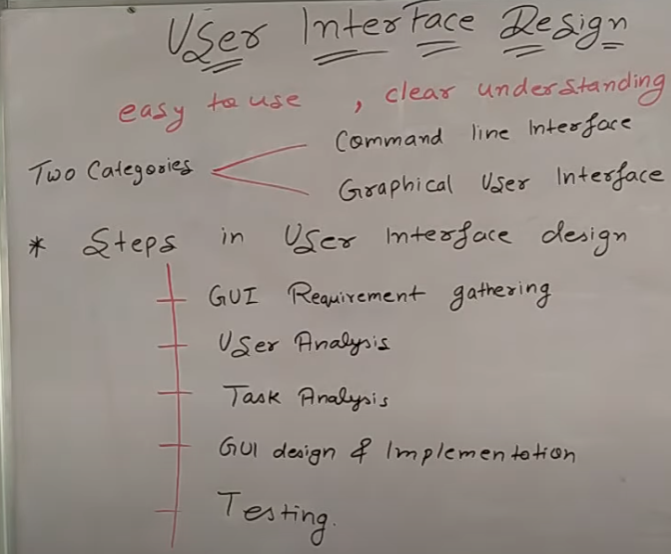 User Interface Design
easy to use , clear understanding
Two Categories
Command line Interface
Graphical User Interface
* Steps in User Interface design
GUI Requirement gathering
User Analysis
Task Analysis
GUI design & Implementation
Testing.